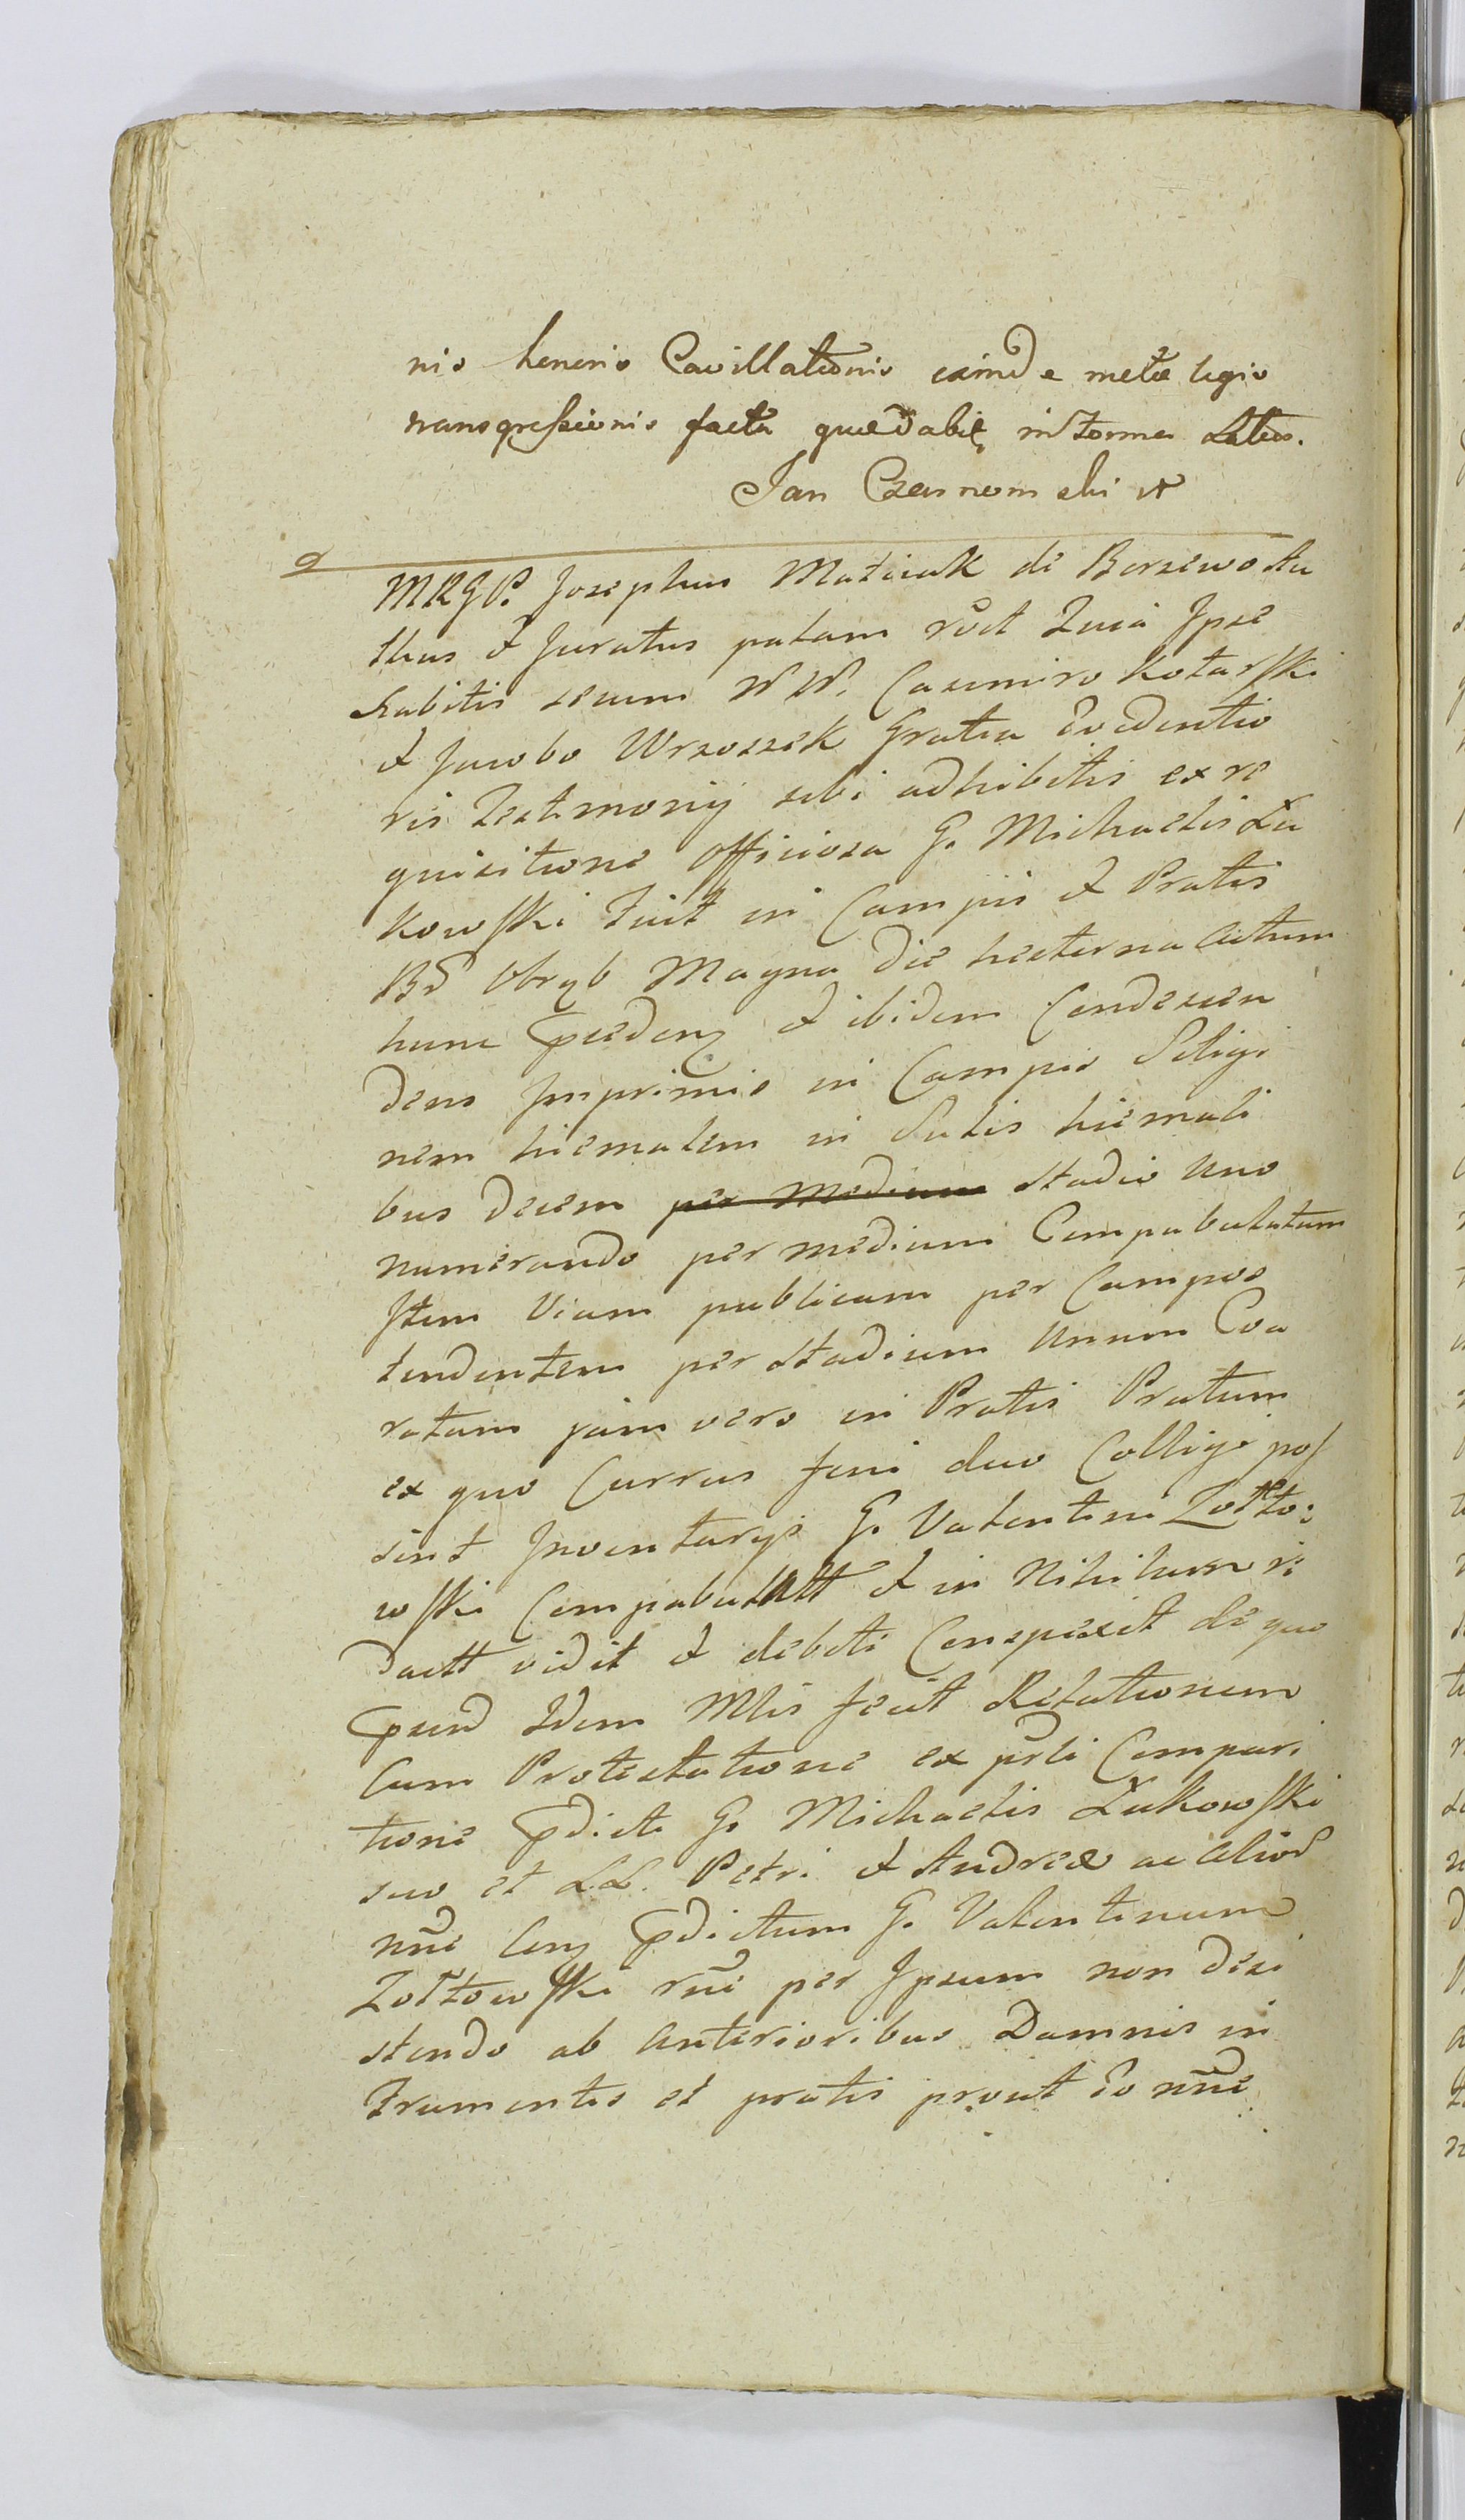 nis tenenis Cavillationis exinde metæ legis
transgressionis facta quædabit in forma Latiss.
Jan Czarnomski
MRGP. Josephus Maziuk de Borzewo Sta
tbus et Juratus palam rect Quia Ipse
habitis secum NN. Casimiro Kotarski
et Jacobo Wrzoszek Gratia Evidentio
ris Testimonij sibi adhibitis ex re
quisitione officiosa G. Michaelis Łu
kowski fuit in Campis et Pratis
Bd Obryb Magna die hesterna actum
hunc prædenz et ibidem Condescen
dens Imprimis in Campis Siligi
nem hiemalem in Satis hiemali
bus decem per medium stadio uno
numerando per medium Compabulatam
Item Viam publicam per Campos
tendentem per stadium unum Coa
ratam jam vero in Pratis Pratum
ex quo Currus feni duo Colligi pos
sint Inventarys G. Valentini Zołto:
wski Compabulatt et in Nihilum re
dactt vidit et debiti Conspexit de quo
præd Idem Mlis fecit Relationem
Cum Protestatione ex prli Compari
tione pdicti G. Michaelis Łukowski
suo et LL. Petri et Andreæ ac aliod
nne Cenz pdictum G. Valentinum
Zołtowski rne per Ipsum non desi
stendo ab anterioribus Damnis in
frumentis et pratis prout Eo nne